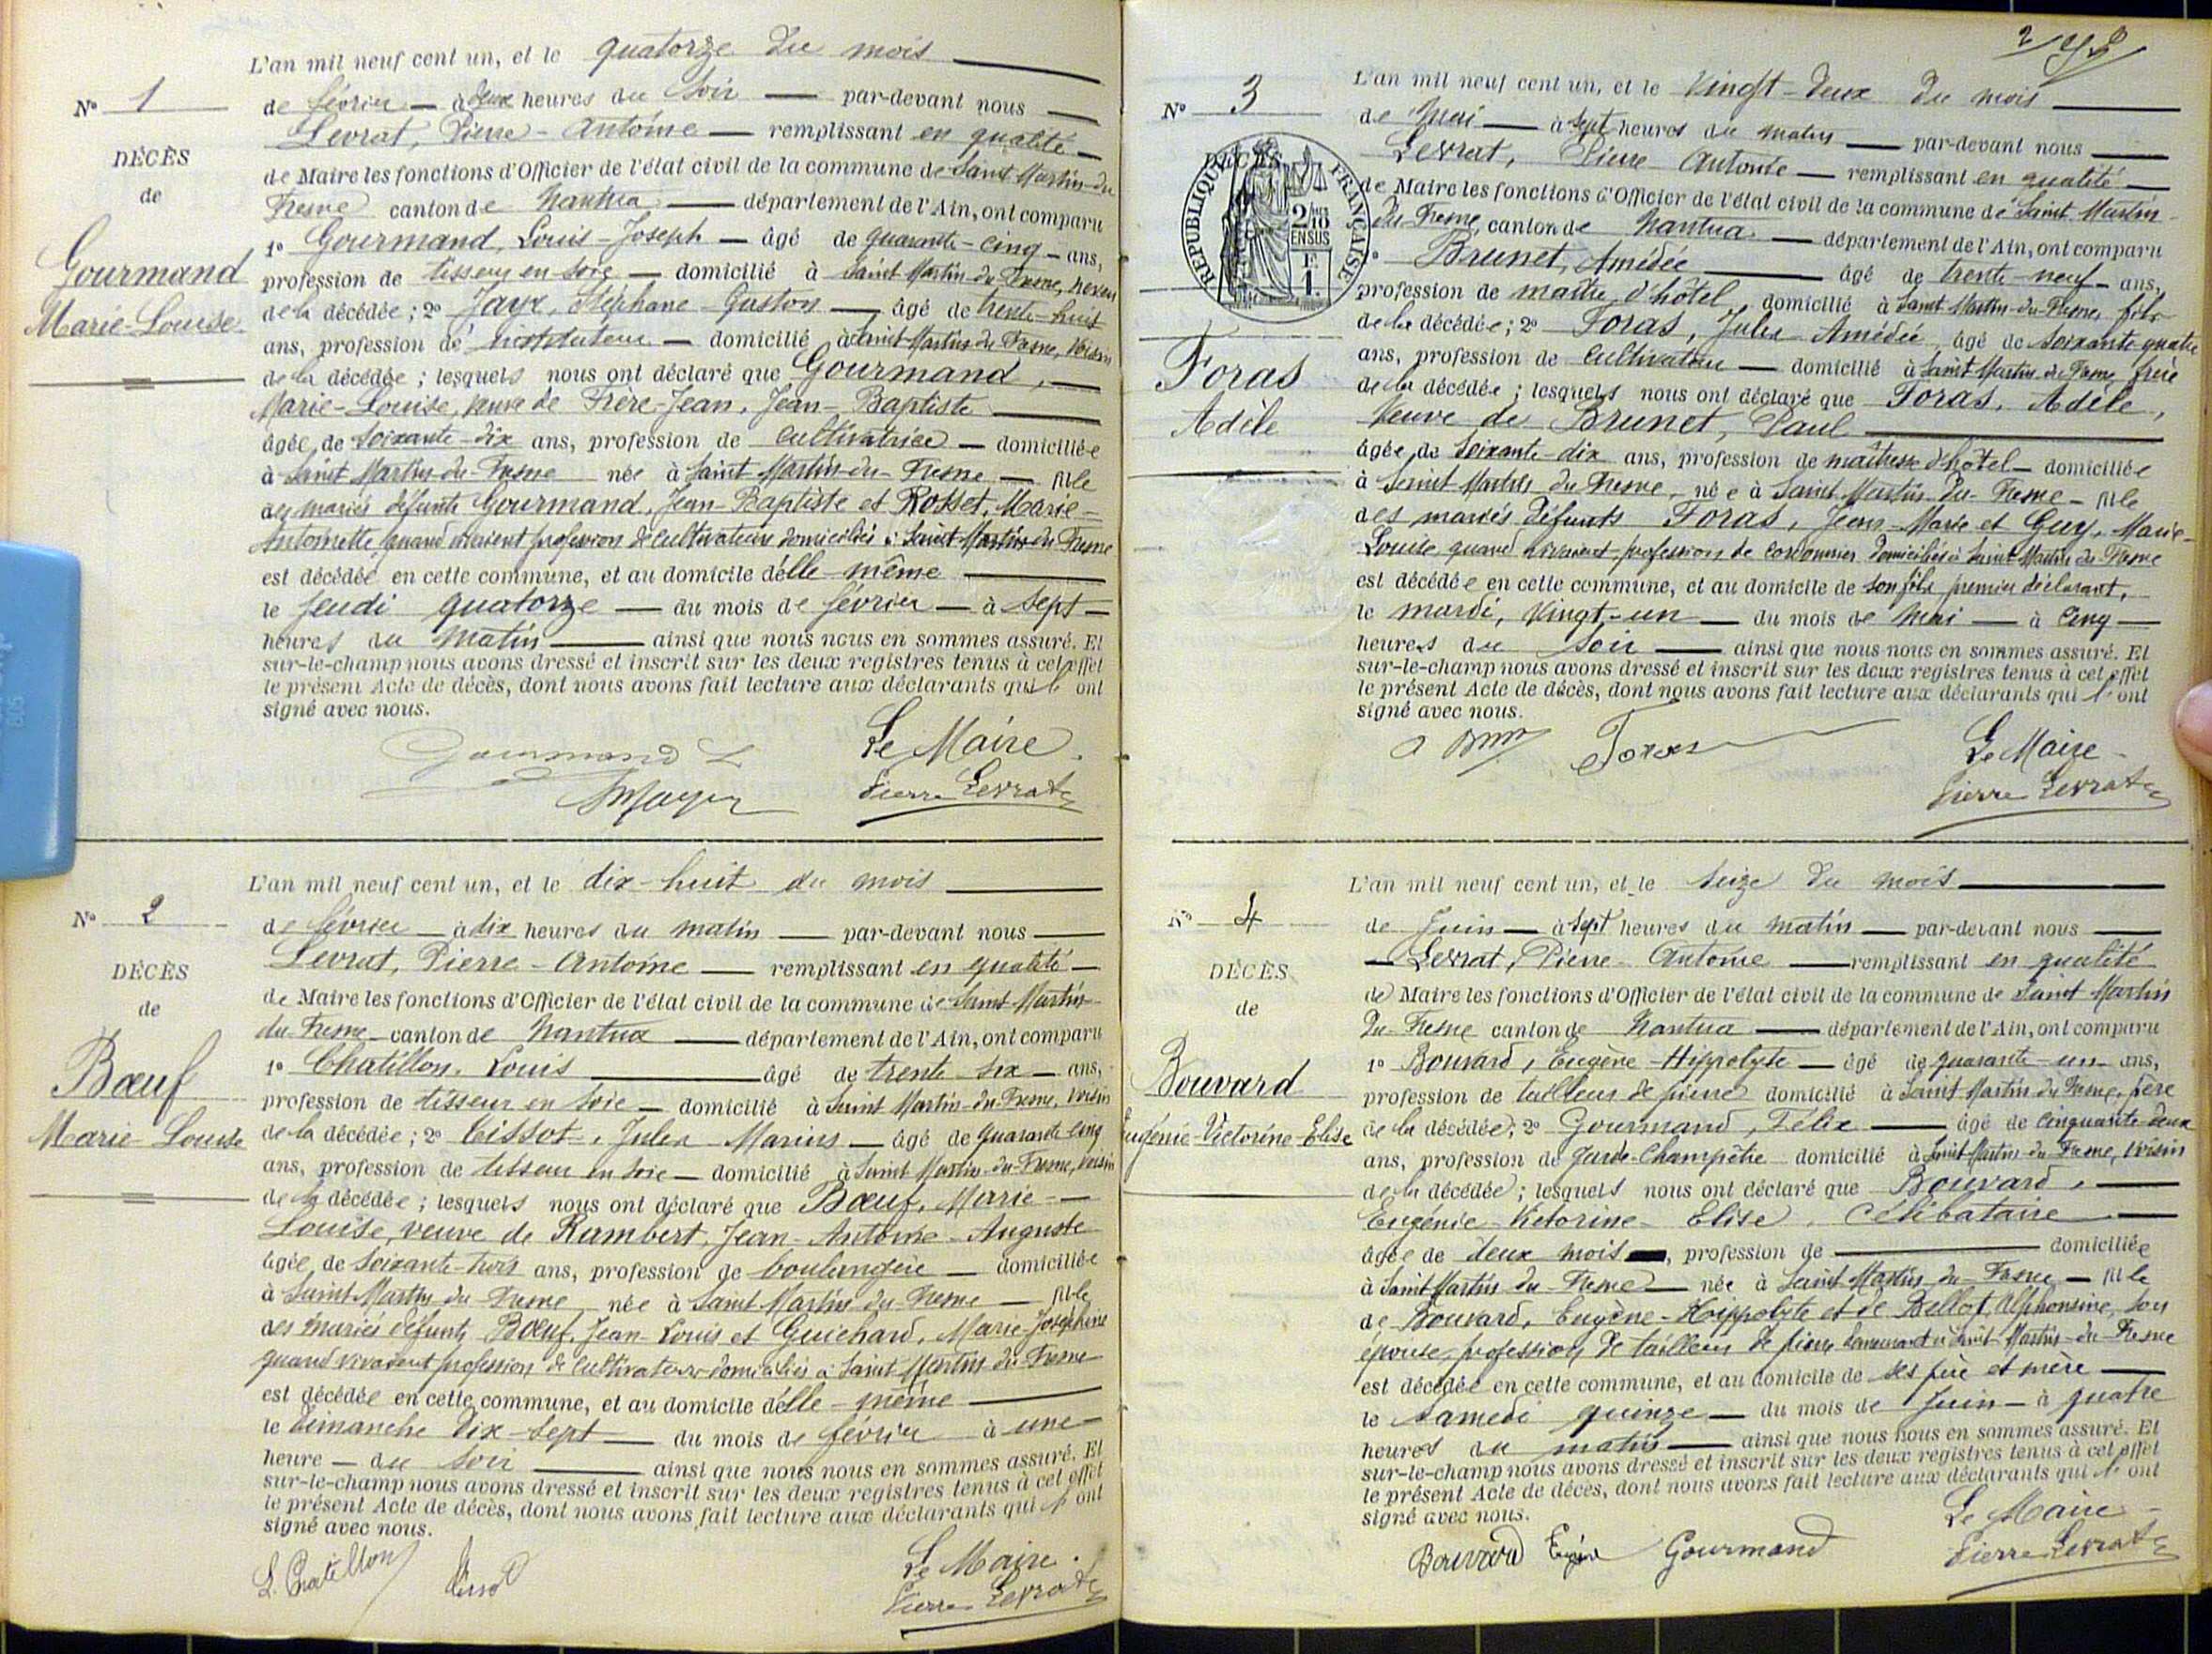 L'an mil neuf cent un, et le quatorze du mois
N° 1
de février — à deux heures du soir — par-devant nous
Levrat, Pierre-Antoine — remplissant en qualité
DÉCÈS
de Maire les fonctions d'Officier de l'état civil de la commune de Saint Martin-du
de
Fresne canton de Nantua — département de l'Ain, ont comparu
1° Gourmand, Louis-Joseph — âgé de quarante-cinq — ans,
Gourmand
profession de tisseur en soie — domicilié à Saint Martin-du-Fresne, neveu
Marie-Louise
de la décédée ; 2° Jayr, Stéphane-Gaston — âgé de trente-huit
ans, profession d'instituteur — domicilié à Saint-Martin du Fresne, voisin
de la décédée ; lesquels nous ont déclaré que Gourmand,
Marie-Louise, veuve de Frère-Jean, Jean-Baptiste
âgée de soixante-dix ans, profession de cultivatrice — domiciliée
à Saint Martin-du-Fresne née à Saint Martin-du-Fresne — fille
des mariés défunts Gourmand, Jean-Baptiste et Rosset, Marie-
Antoinette, quand vivaient profession de cultivateurs domiciliés à Saint-Martin-du Fresne
est décédée en cette commune, et au domicile d'elle-même
le jeudi quatorze — du mois de février — à sept —
heures du matin — ainsi que nous nous en sommes assuré. Et
sur-le-champ nous avons dressé et inscrit sur les deux registres tenus à cet effet
le présent Acte de décès, dont nous avons fait lecture aux déclarants qui l'ont
signé avec nous.
Gourmand L
Le Maire.
Pierre Levrat
L'an mil neuf cent un, et le dix-huit du mois
N° 2
de février — à dix heures du matin — par-devant nous
Levrat, Pierre-Antoine — remplissant en qualité —
DÉCÈS
de Maire les fonctions d'Officier de l'état civil de la commune de Saint Martin-
de
du-Fresne — canton de Nantua — département de l'Ain, ont comparu
1° Chatillon, Louis — âgé de trente six — ans,
Bœuf
profession de tisseur en soie — domicilié à Saint Martin-du-Fresne, voisin
Marie Louise
de la décédée ; 2° Cissot, Jules-Marius — âgé de quarante cinq
ans, profession de tisseur en soie — domicilié à Saint Martin-du-Fresne, voisin
de la décédée ; lesquels nous ont déclaré que Bœuf, Marie-
Louise, veuve de Rambert, Jean-Antoine-Auguste
âgée de soixante-trois ans, profession de boulangère — domiciliée
à Saint Martin du Fresne, née à Saint Martin-du-Fresne — fille
des mariés défunts Bœuf, Jean-Louis et Guichard, Marie-Joséphine
quand vivaient profession de cultivateurs domiciliés à Saint Martin-du-Fresne
est décédée en cette commune, et au domicile d'elle-même
le dimanche dix-sept — du mois de février à une
heure — du soir — ainsi que nous nous en sommes assuré. Et
sur-le-champ nous avons dressé et inscrit sur les deux registres tenus à cet effet
le présent Acte de décès, dont nous avons fait lecture aux déclarants qui l'ont
signé avec nous.
L. Chatillon
Le Maire.
Pierre Levrat
2
L'an mil neuf cent un, et le vingt-deux du mois
N° 3
de Mai — à sept heures du matin — par-devant nous
Levrat, Pierre-Antoine — remplissant en qualité
DÉCÈS
RÉPUBLIQUE FRANÇAISE
2/10 EN SUS
F. 1.
de Maire les fonctions d'Officier de l'état civil de la commune de Saint Martin-
du-Fresne, canton de Nantua — département de l'Ain, ont comparu
1° Brunet, Amédée — âgé de trente-neuf — ans,
profession de maître d'hôtel, domicilié à Saint Martin-du-Fresne, fils
de la décédée ; 2° Foras, Jules Amédée, âgé de soixante quatre
Foras
ans, profession de cultivateur — domicilié à Saint-Martin-du Fresne, frère
de la décédée ; lesquels nous ont déclaré que Foras, Adèle,
Adèle
veuve de Brunet, Paul
âgée de soixante-dix ans, profession de maîtresse d'hôtel — domiciliée
à Saint-Martin du Fresne, née à Saint Martin-du-Fresne — fille
des mariés défunts Foras, Jean-Marie et Guy, Marie-
Louise quand vivaient profession de cordonnier domiciliés à Saint Martin du Fresne
est décédée en cette commune, et au domicile de son fils premier déclarant,
le mardi, vingt-un — du mois de mai — à cinq —
heures du soir — ainsi que nous nous en sommes assuré. Et
sur-le-champ nous avons dressé et inscrit sur les deux registres tenus à cet effet
le présent Acte de décès, dont nous avons fait lecture aux déclarants qui l'ont
signé avec nous.
Foras
Le Maire
Pierre Levrat
L'an mil neuf cent un, et le seize du mois
N° 4
de Juin — à sept heures du matin — par-devant nous
Levrat, Pierre-Antoine — remplissant en qualité
DÉCÈS
de Maire les fonctions d'Officier de l'état civil de la commune de Saint Martin
de
du-Fresne canton de Nantua — département de l'Ain, ont comparu
1° Bouvard, Eugène-Hippolyte — âgé de quarante-un — ans,
Bouvard
profession de tailleur de pierre domicilié à Saint Martin du Fresne, père
Eugénie-Victorine-Elise
de la décédée, 2° Gourmand, Félix — âgé de cinquante-deux
ans, profession de garde-Champêtre domicilié à Saint Martin du Fresne, voisin
de la décédée ; lesquels nous ont déclaré que Bouvard,
Eugénie-Victorine-Elise, célibataire
âgée de deux mois, profession de — domiciliée
à Saint Martin du-Fresne — née à Saint Martin du-Fresne — fille
de Bouvard, Eugène-Hippolyte et de Bellot, Alphonsine, son
épouse, profession de tailleur de pierre demeurant à Saint Martin-du-Fresne
est décédée en cette commune, et au domicile de ses père et mère
le samedi quinze — du mois de Juin — à quatre
heures du matin — ainsi que nous nous en sommes assuré. Et
sur-le-champ nous avons dressé et inscrit sur les deux registres tenus à cet effet
le présent Acte de décès, dont nous avons fait lecture aux déclarants qui l'ont
signé avec nous.
Bouvard Eugène Gourmand
Le Maire
Pierre Levrat